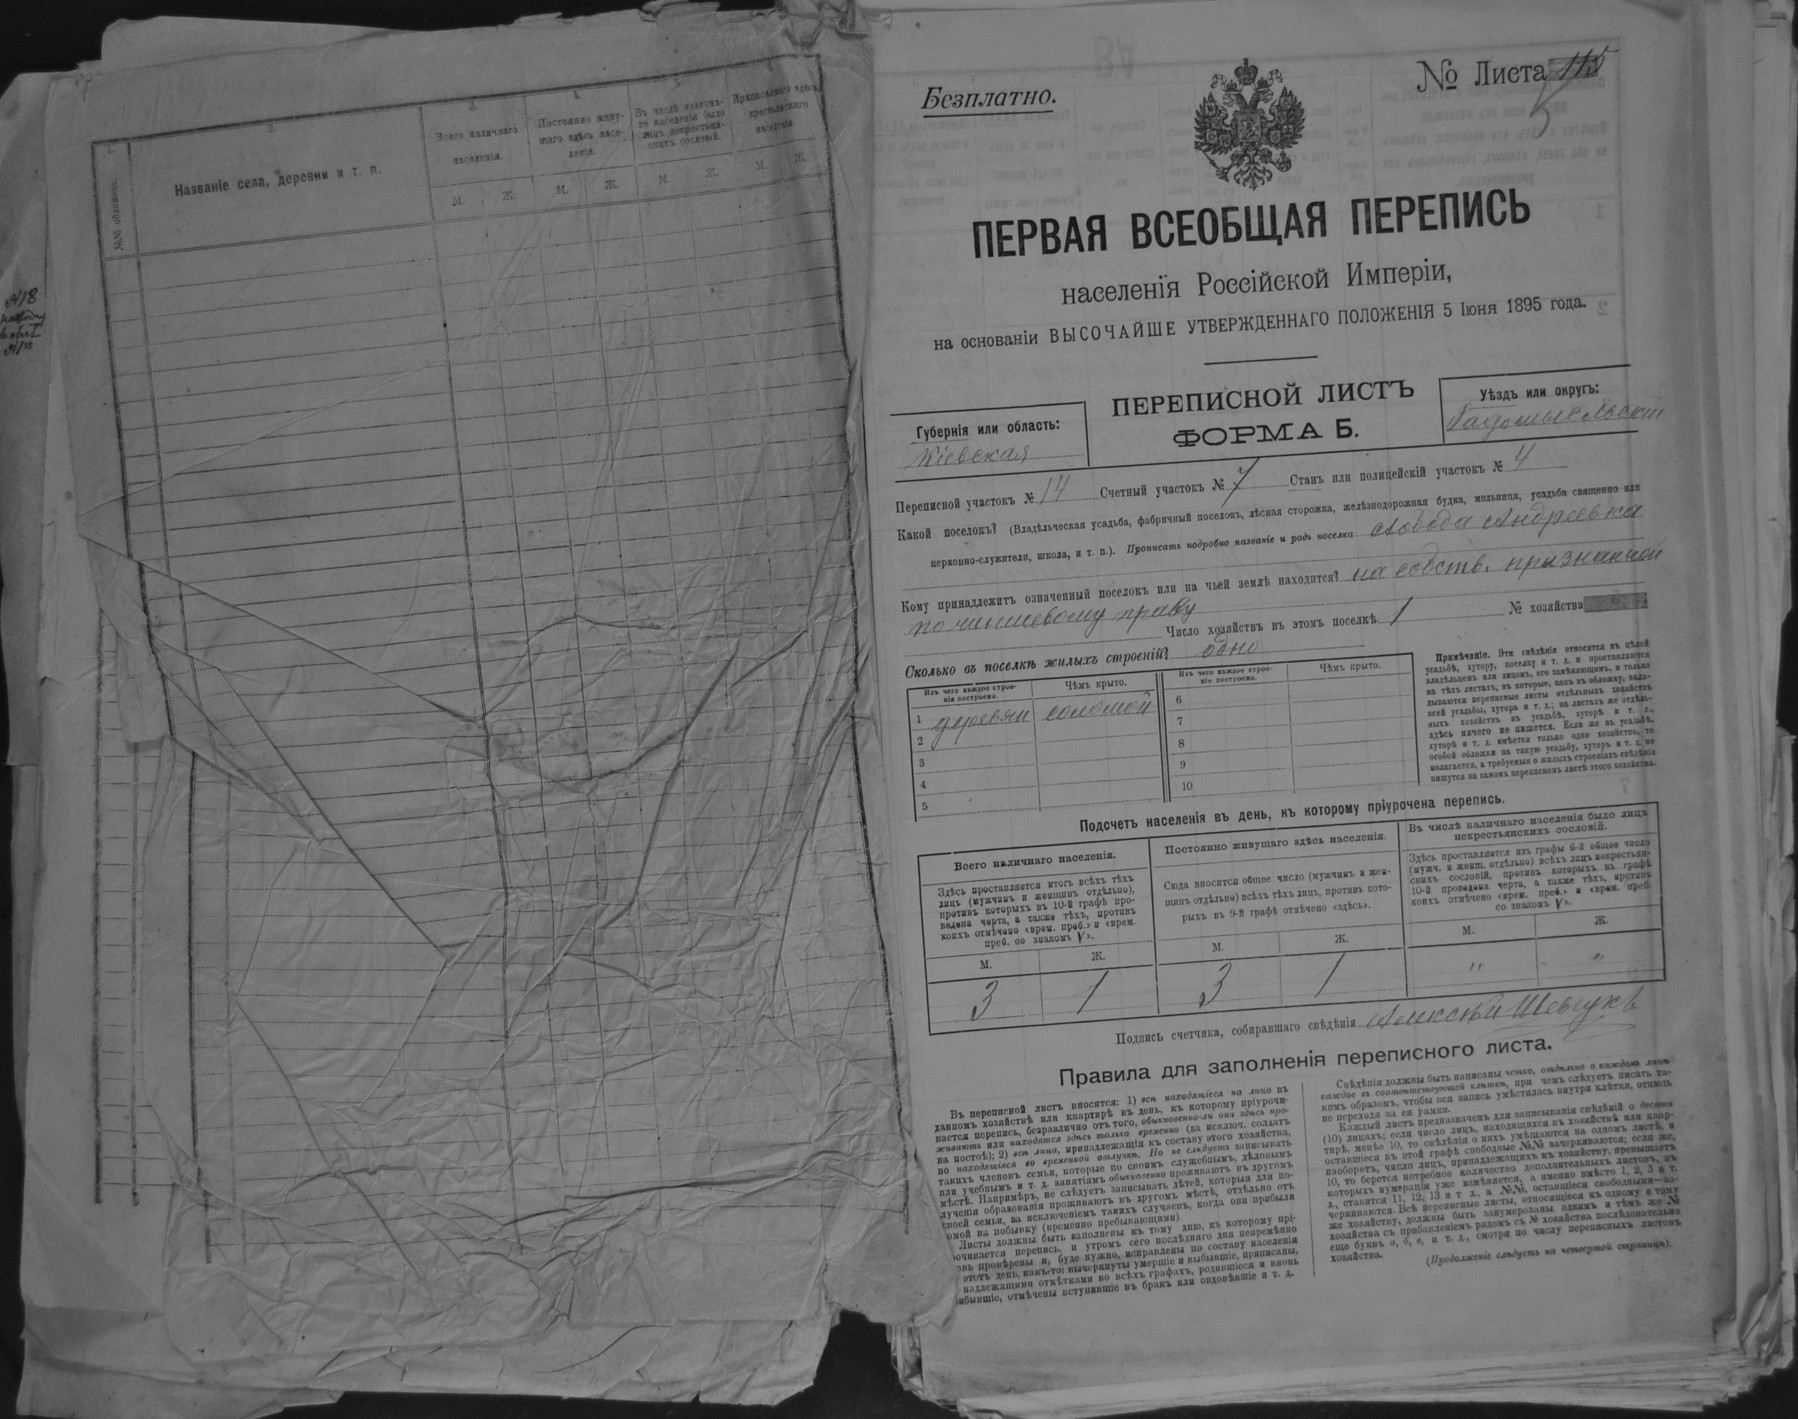 1.
2.
3.
4.
5.
№№ обложекъ.
Названіе села, деревни и т. п.
Всего наличнаго населенія.
Постоянно живу-
щаго здѣсь насе-
ленія.
Въ числѣ налична-
го населенія было
лицъ некрестьян-
скихъ сословій.
Приписаннаго здѣсь
крестьянскаго
населенія.
М. Ж. М. Ж. М. Ж. М. Ж.
№18
Безплатно.
№ Листа 115
5
ПЕРВАЯ ВСЕОБЩАЯ ПЕРЕПИСЬ
населенія Россійской Имперіи,
на основаніи ВЫСОЧАЙШЕ УТВЕРЖДЕННАГО ПОЛОЖЕНІЯ 5 Іюня 1895 года.
ПЕРЕПИСНОЙ ЛИСТЪ
ФОРМА Б.
Губернія или область:
Кіевская
Уѣздъ или округъ:
Радомысльскій
Переписной участокъ № 14 Счетный участокъ № 7 Станъ или полицейскій участокъ № 4
Какой поселокъ? (Владѣльческая усадьба, фабричный поселокъ, лѣсная сторожка, желѣзнодорожная будка, мельница, усадьба священно или
церковно-служителя, школа, и т. п.). Прописать подробно названіе и родъ поселка слобода Андреевка
Кому принадлежитъ означенный поселокъ или на чьей землѣ находится? на собств. признанной
по чиншевому праву
Число хозяйствъ въ этомъ поселкѣ 1 № хозяйства
Сколько въ поселкѣ жилыхъ строеній? одно
Изъ чего каждое строе-
ніе построено.
Чѣмъ крыто.
Изъ чего каждое строе-
ніе построено.
Чѣмъ крыто.
1 деревян соломой
2
3
4
5
6
7
8
9
10
Примѣчаніе. Эти свѣдѣнія относятся къ цѣлой
усадьбѣ, хутору, поселку и т. д. и проставляются
владѣльцемъ или лицомъ, его замѣняющимъ, и только
на тѣхъ листахъ, въ которые, какъ въ обложку, вкла-
дываются переписные листы отдѣльныхъ хозяйствъ
всей усадьбы, хутора и т. д.; на листахъ же отдѣль-
ныхъ хозяйствъ въ усадьбѣ, хуторѣ и т. д.,
здѣсь ничего не пишется. Если же въ усадьбѣ,
хуторѣ и т. д. имѣется только одно хозяйство, то
особой обложки на такую усадьбу, хуторъ и т. д. не
полагается, а требуемыя о жилыхъ строеніяхъ свѣдѣнія
пишутся на самомъ переписномъ листѣ этого хозяйства.
Подсчетъ населенія въ день, къ которому пріурочена перепись.
Всего наличнаго населенія.
Здѣсь проставляется итогъ всѣхъ тѣхъ
лицъ (мужчинъ и женщинъ отдѣльно),
противъ которыхъ въ 10-й графѣ про-
ведена черта, а также тѣхъ, противъ
коихъ отмѣчено «врем. преб.» и «врем.
преб. со знакомъ V».
Постоянно живущаго здѣсь населенія.
Сюда вносится общее число (мужчинъ и жен-
щинъ отдѣльно) всѣхъ тѣхъ лицъ, противъ кото-
рыхъ въ 9-й графѣ отмѣчено «здѣсь».
Въ числѣ наличнаго населенія было лицъ
некрестьянскихъ сословій.
Здѣсь проставляется изъ графы 6-й общее число
(мужч. и женщ. отдѣльно) всѣхъ лицъ некрестьян-
скихъ сословій, противъ которыхъ въ графѣ
10-й проведена черта, а также тѣхъ, противъ
коихъ отмѣчено «врем. преб.» и «врем. преб.
со знакомъ V».
М. Ж. М. Ж. М. Ж.
3 1 3 1 " "
Подпись счетчика, собиравшаго свѣдѣнія Алексѣй Шевчукъ
Правила для заполненія переписного листа.
Въ переписной листъ вносятся: 1) всѣ находящіеся на лицо въ
данномъ хозяйствѣ или квартирѣ въ день, къ которому пріурочи-
вается перепись, безразлично отъ того, обыкновенно-ли они здѣсь про-
живаютъ или находятся здѣсь только временно (за исключ. солдатъ
на постоѣ); 2) всѣ лица, принадлежащія къ составу этого хозяйства,
но находящіеся во временной отлучкѣ. Но не слѣдуетъ записывать
такихъ членовъ семьи, которые по своимъ служебнымъ, дѣловымъ
или учебнымъ и т. д. занятіямъ обыкновенно проживаютъ въ другомъ
мѣстѣ. Напримѣръ, не слѣдуетъ записывать дѣтей, которыя для по-
лученія образованія проживаютъ въ другомъ мѣстѣ, отдѣльно отъ
своей семьи, за исключеніемъ такихъ случаевъ, когда они прибыли
домой на побывку (временно пребывающими).
Листы должны быть заполнены къ тому дню, къ которому прі-
рочивается перепись, и утромъ сего послѣдняго дня непремѣнно
вновь провѣрены и, буде нужно, исправлены по составу населенія
этотъ день, какъ-то: вычеркнуты умершіе и выбывшіе, приписаны,
надлежащими отмѣтками во всѣхъ графахъ, родившіеся и вновь
прибывшіе, отмѣчены вступившіе въ бракъ или овдовѣвшіе и т. д.
Свѣдѣнія должны быть написаны четко, отдѣльно о каждомъ лицѣ
каждое въ соотвѣтствующей клѣткѣ, при чемъ слѣдуетъ писать та-
кимъ образомъ, чтобы вся запись умѣстилась внутри клѣтки, отнюдь
не переходя за ея рамки.
Каждый листъ предназначенъ для записыванія свѣдѣній о десяти
(10) лицахъ; если число лицъ, находящихся въ хозяйствѣ или квар-
тирѣ, менѣе 10, то свѣдѣнія о нихъ умѣщаются на одномъ листѣ, и
оставшіеся въ этой графѣ свободные №№ зачеркиваются; если же,
наоборотъ, число лицъ, принадлежащихъ къ хозяйству, превышаетъ
10, то берется потребное количество дополнительныхъ листовъ, въ
которыхъ нумерація уже измѣняется, а именно вмѣсто 1, 2, 3 и т.
д., ставится 11, 12, 13 и т д., а №№, оставшіеся свободными—за-
черкиваются. Всѣ переписные листы, относящіеся къ одному и тому
же хозяйству, должны быть занумерованы однимъ и тѣмъ же №
хозяйства съ прибавленіемъ рядомъ съ № хозяйства послѣдовательно
еще буквъ а, б, в, и т. д., смотря по числу переписныхъ листовъ
хозяйства.
(Продолженіе слѣдуетъ на четвертой страницѣ).